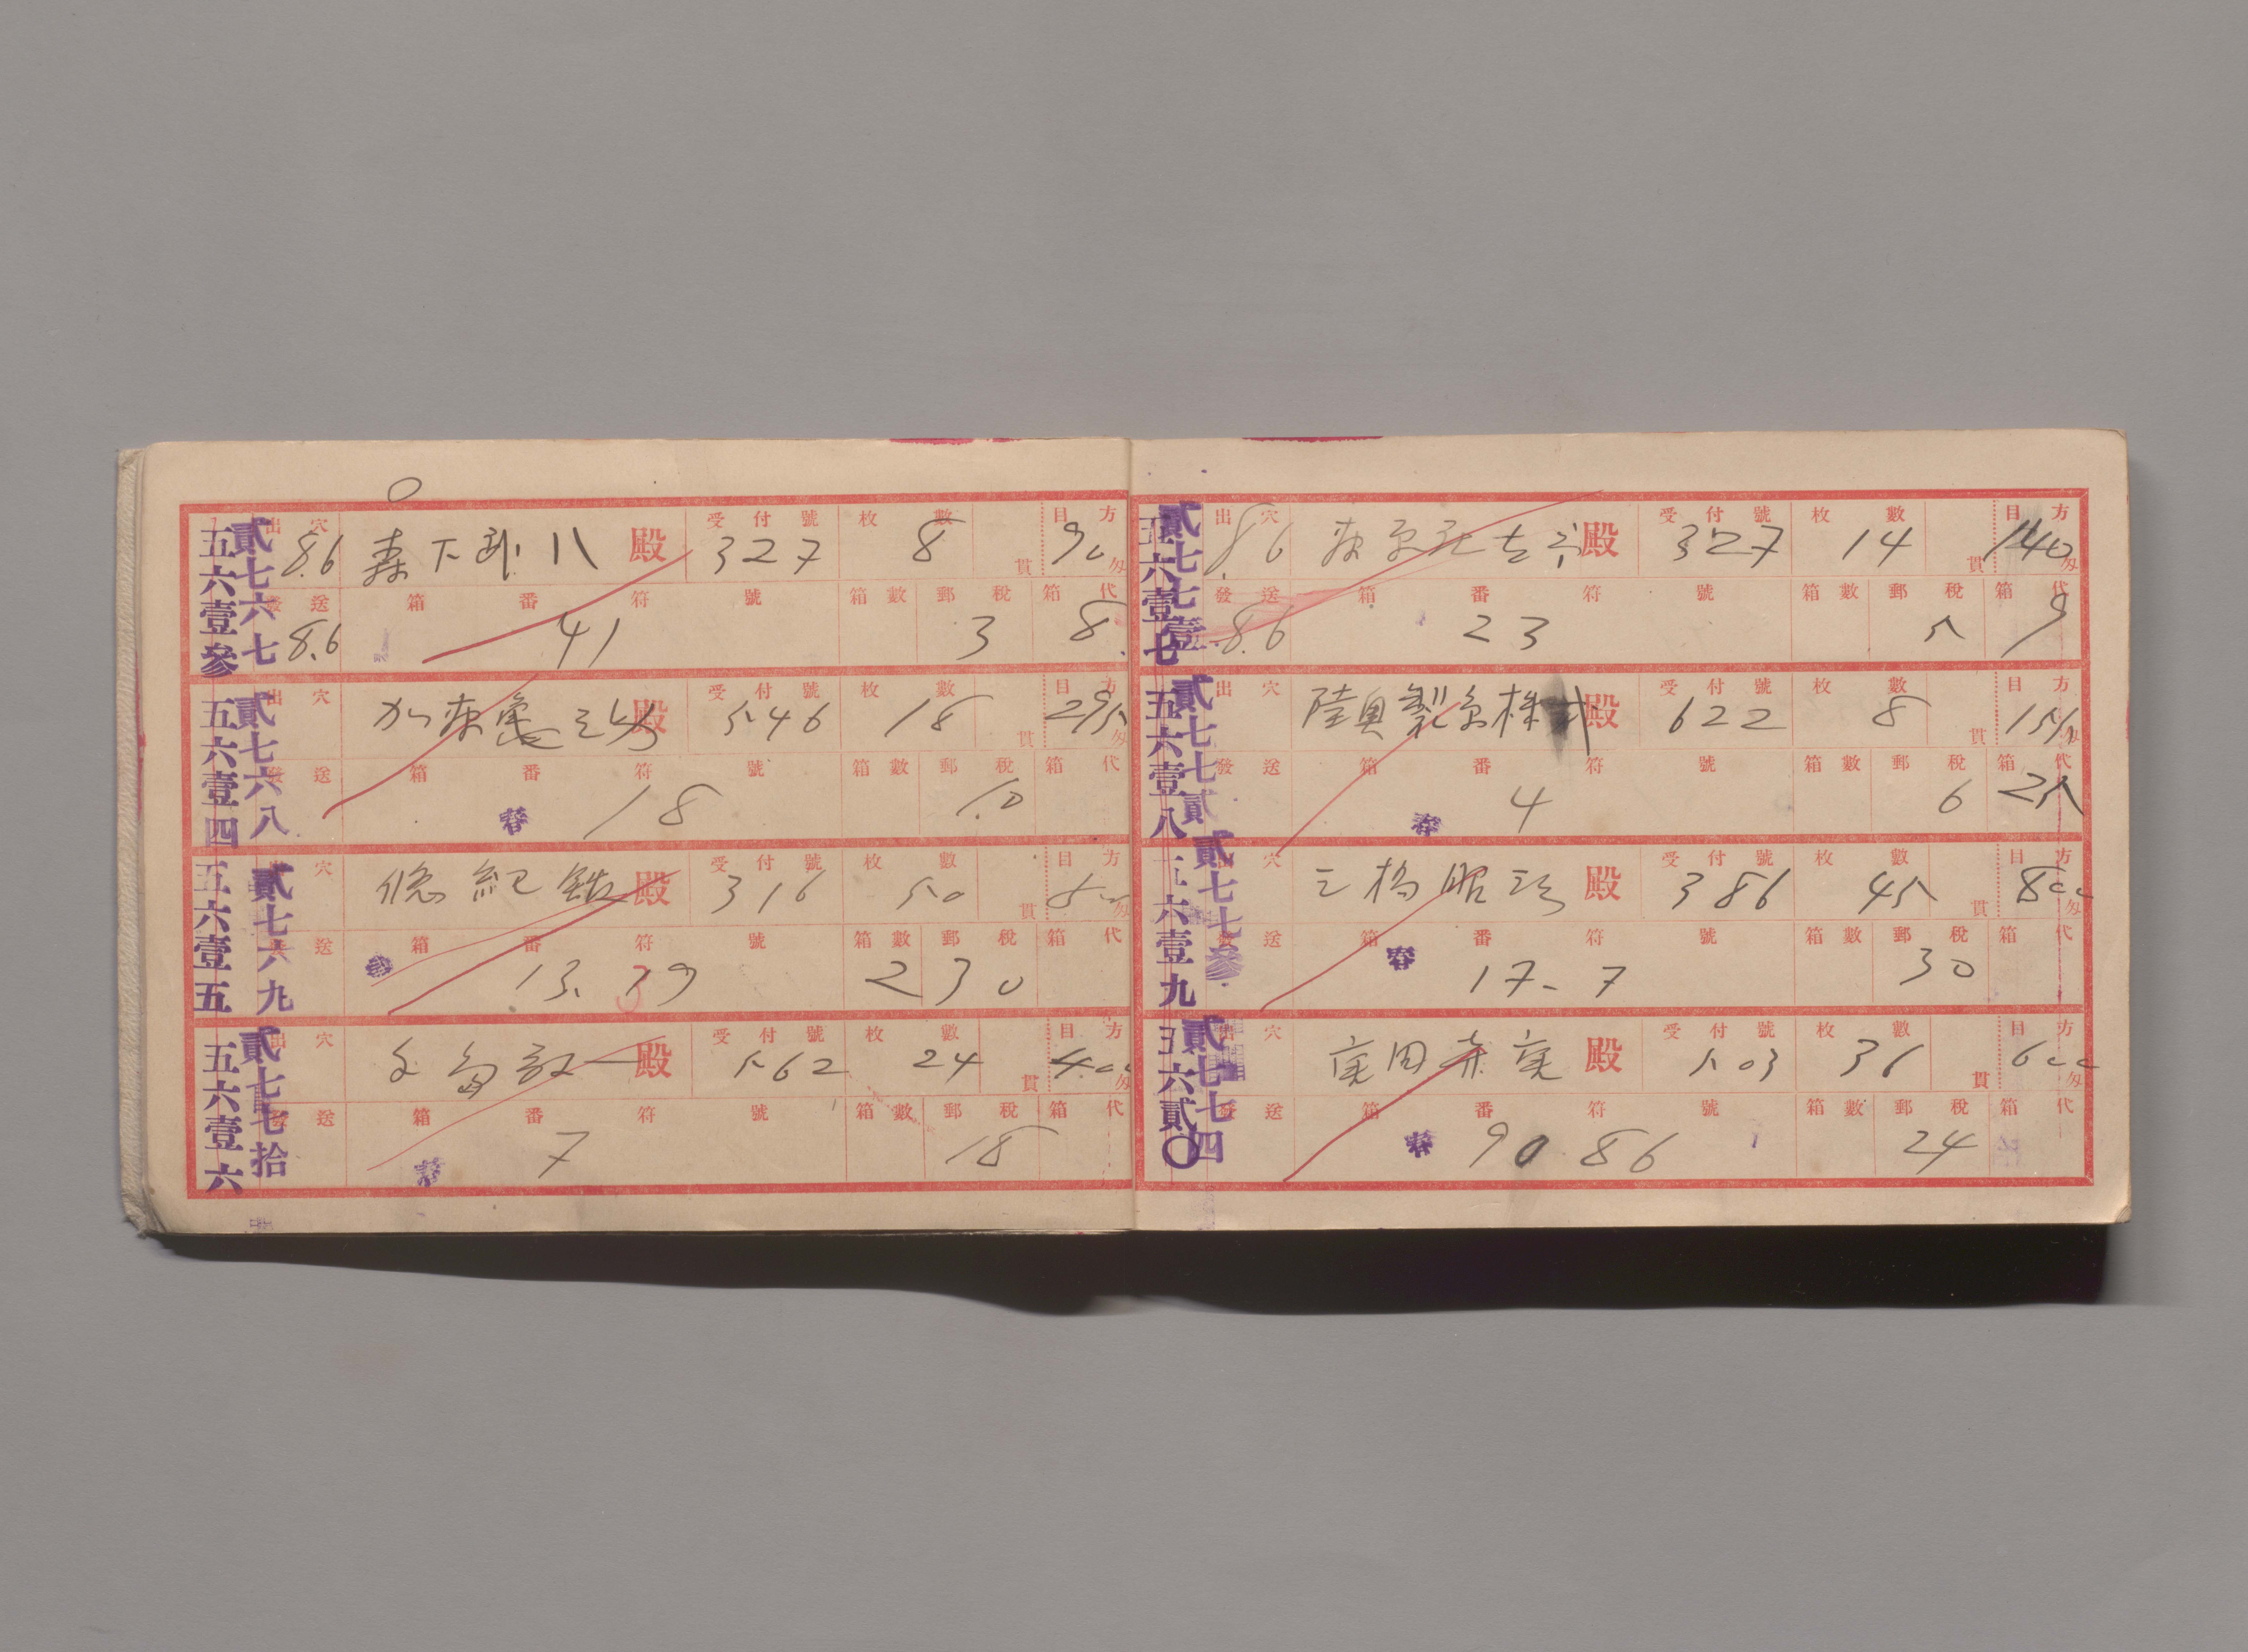 五六壹參
貳七六七
出穴 8.6 森下郎八殿 受付號 327 枚數 8 貫 目方 90 匁
發送 8.6 箱番符號 41 箱數 郵稅 3 箱代 8
五六壹四
貳七六八
出穴 殿 受付號 546 枚數 18 貫 目方 匁
發送 箱番符號 春 18 箱數 郵稅 10 箱代
五六壹五
貳七六九
穴 殿 受付號 316 枚數 50 貫 目方 匁
送 箱番符號 13. 19 箱數 2 郵稅 30 箱代
五六壹六
貳七七拾
出穴 殿 受付號 562 枚數 24 貫 目方 400 匁
發送 箱番符號 春 7 箱數 郵稅 18 箱代
五六壹七
貳七七壹
出穴 8.6 殿 受付號 327 枚數 14 貫 目方 140 匁
發送 8.6 箱番符號 23 箱數 郵稅 5 箱代 9
五六壹八
貳七七貳
出穴 陸奥製糸株式殿 受付號 622 枚數 8 貫 目方 155 匁
發送 箱番符號 春 4 箱數 郵稅 6 箱代 25
五六壹九
貳七七參
穴 三橋昭治殿 受付號 386 枚數 45 貫 目方 800 匁
送 箱番符號 春 17-7 箱數 郵稅 30 箱代
五六貳〇
貳七七四
出穴 殿 受付號 503 枚數 36 貫 目方 600 匁
發送 箱番符號 春 90 86 箱數 郵稅 24 箱代